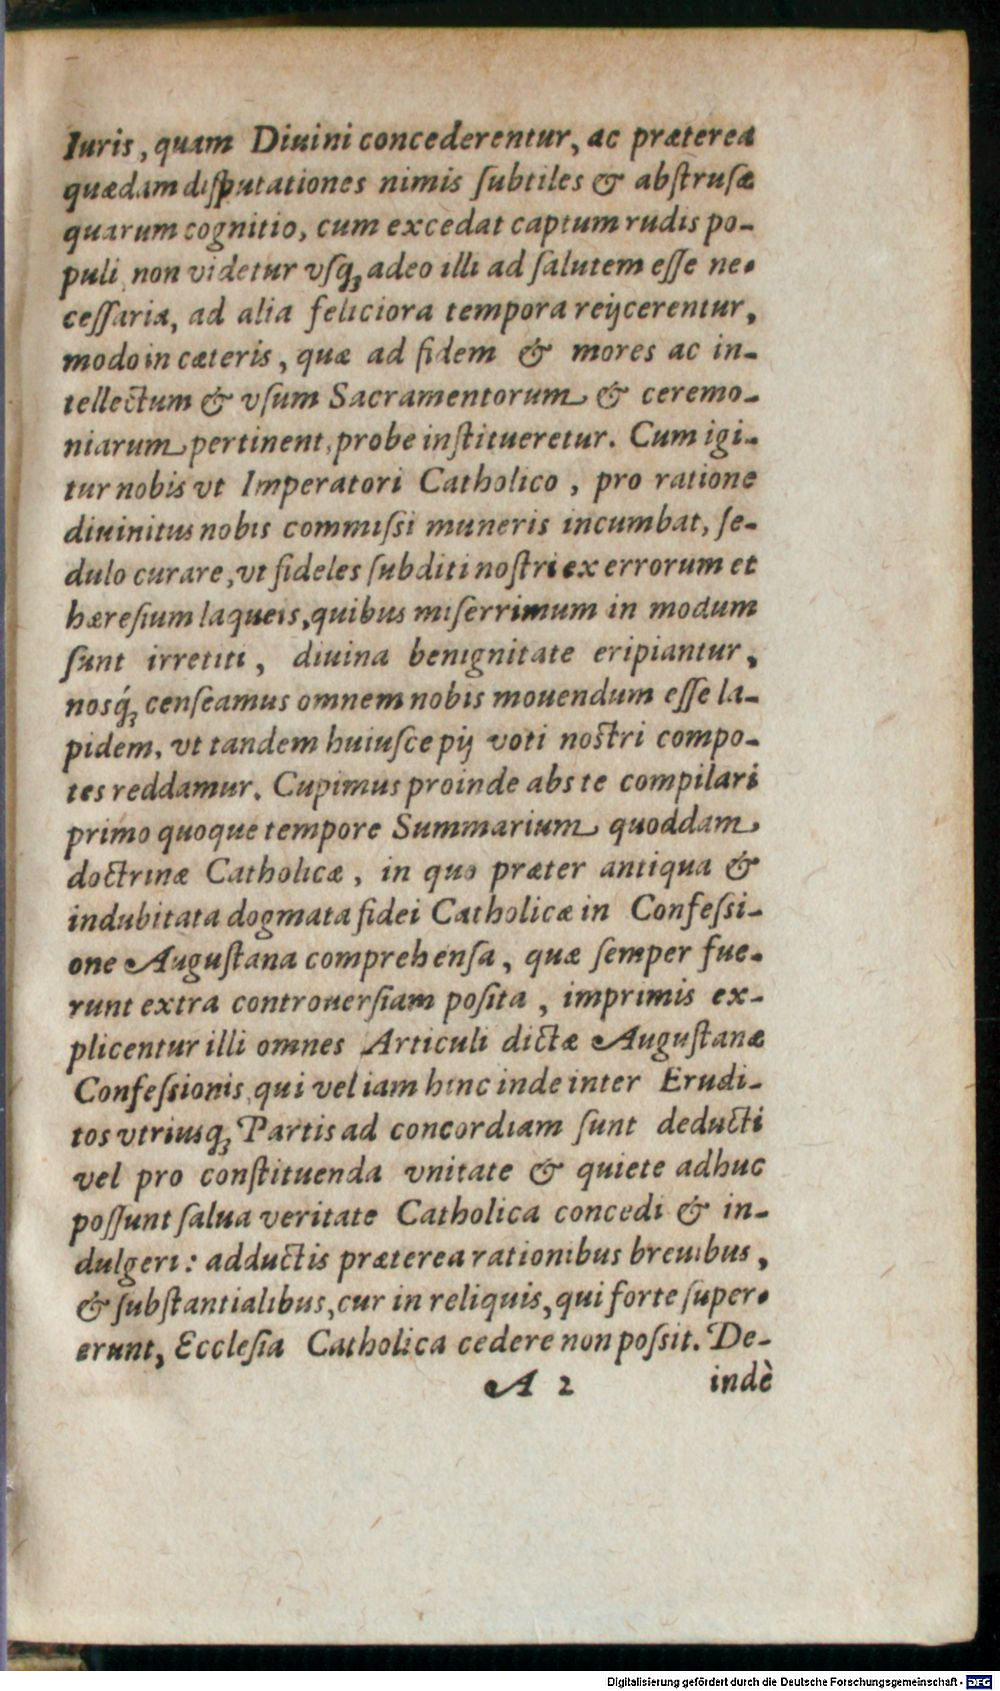 Iuris, quam Diuini concederentur, ac præterea
quædam diſputationes nimis ſubtiles & abſtruſæ
quarum cognitio, cum excedat captum rudis po-
puli, non videtur vſq́ꝫ adeo illi ad ſalutem eſſe ne-
ceſſaria, ad alia feliciora tempora reijcerentur,
modo in cæteris, quæ ad fidem & mores ac in-
tellectum & vſum Sacramentorum & ceremo-
niarum pertinent, probe inſtitueretur. Cum igi-
tur nobis vt Imperatori Catholico, pro ratione
diuinitus nobis commiſſi muneris incumbat, ſe-
dulo curare, vt fideles ſubditi noſtri ex errorum et
hæreſium laqueis, quibus miſerrimum in modum
ſunt irretiti, diuina benignitate eripiantur,
nosq́ꝫ cenſeamus omnem nobis mouendum eſſe la-
pidem, vt tandem huiuſce pij voti noſtri compo-
tes reddamur. Cupimus proinde abs te compilari
primo quoque tempore Summarium quoddam
doctrinæ Catholicæ, in quo præter antiqua &
indubitata dogmata fidei Catholicæ in Confeſsi-
one Auguſtana comprehenſa, quæ ſemper fue-
runt extra controuerſiam poſita, imprimis ex-
plicentur illi omnes Articuli dictæ Auguſtanæ
Confeſsionis, qui vel iam hinc inde inter Erudi-
tos vtriusqꝫ Partis ad concordiam ſunt deducti
vel pro conſtituenda vnitate & quiete adhuc
poſſunt ſalua veritate Catholica concedi & in-
dulgeri: adductis præterea rationibus breuibus,
& ſubſtantialibus, cur in reliquis, qui forte ſuper-
erunt, Eccleſia Catholica cedere non poſsit. De-
A 2 indè
Digitalisierung gefördert durch die Deutsche Forschungsgemeinschaft - DFG